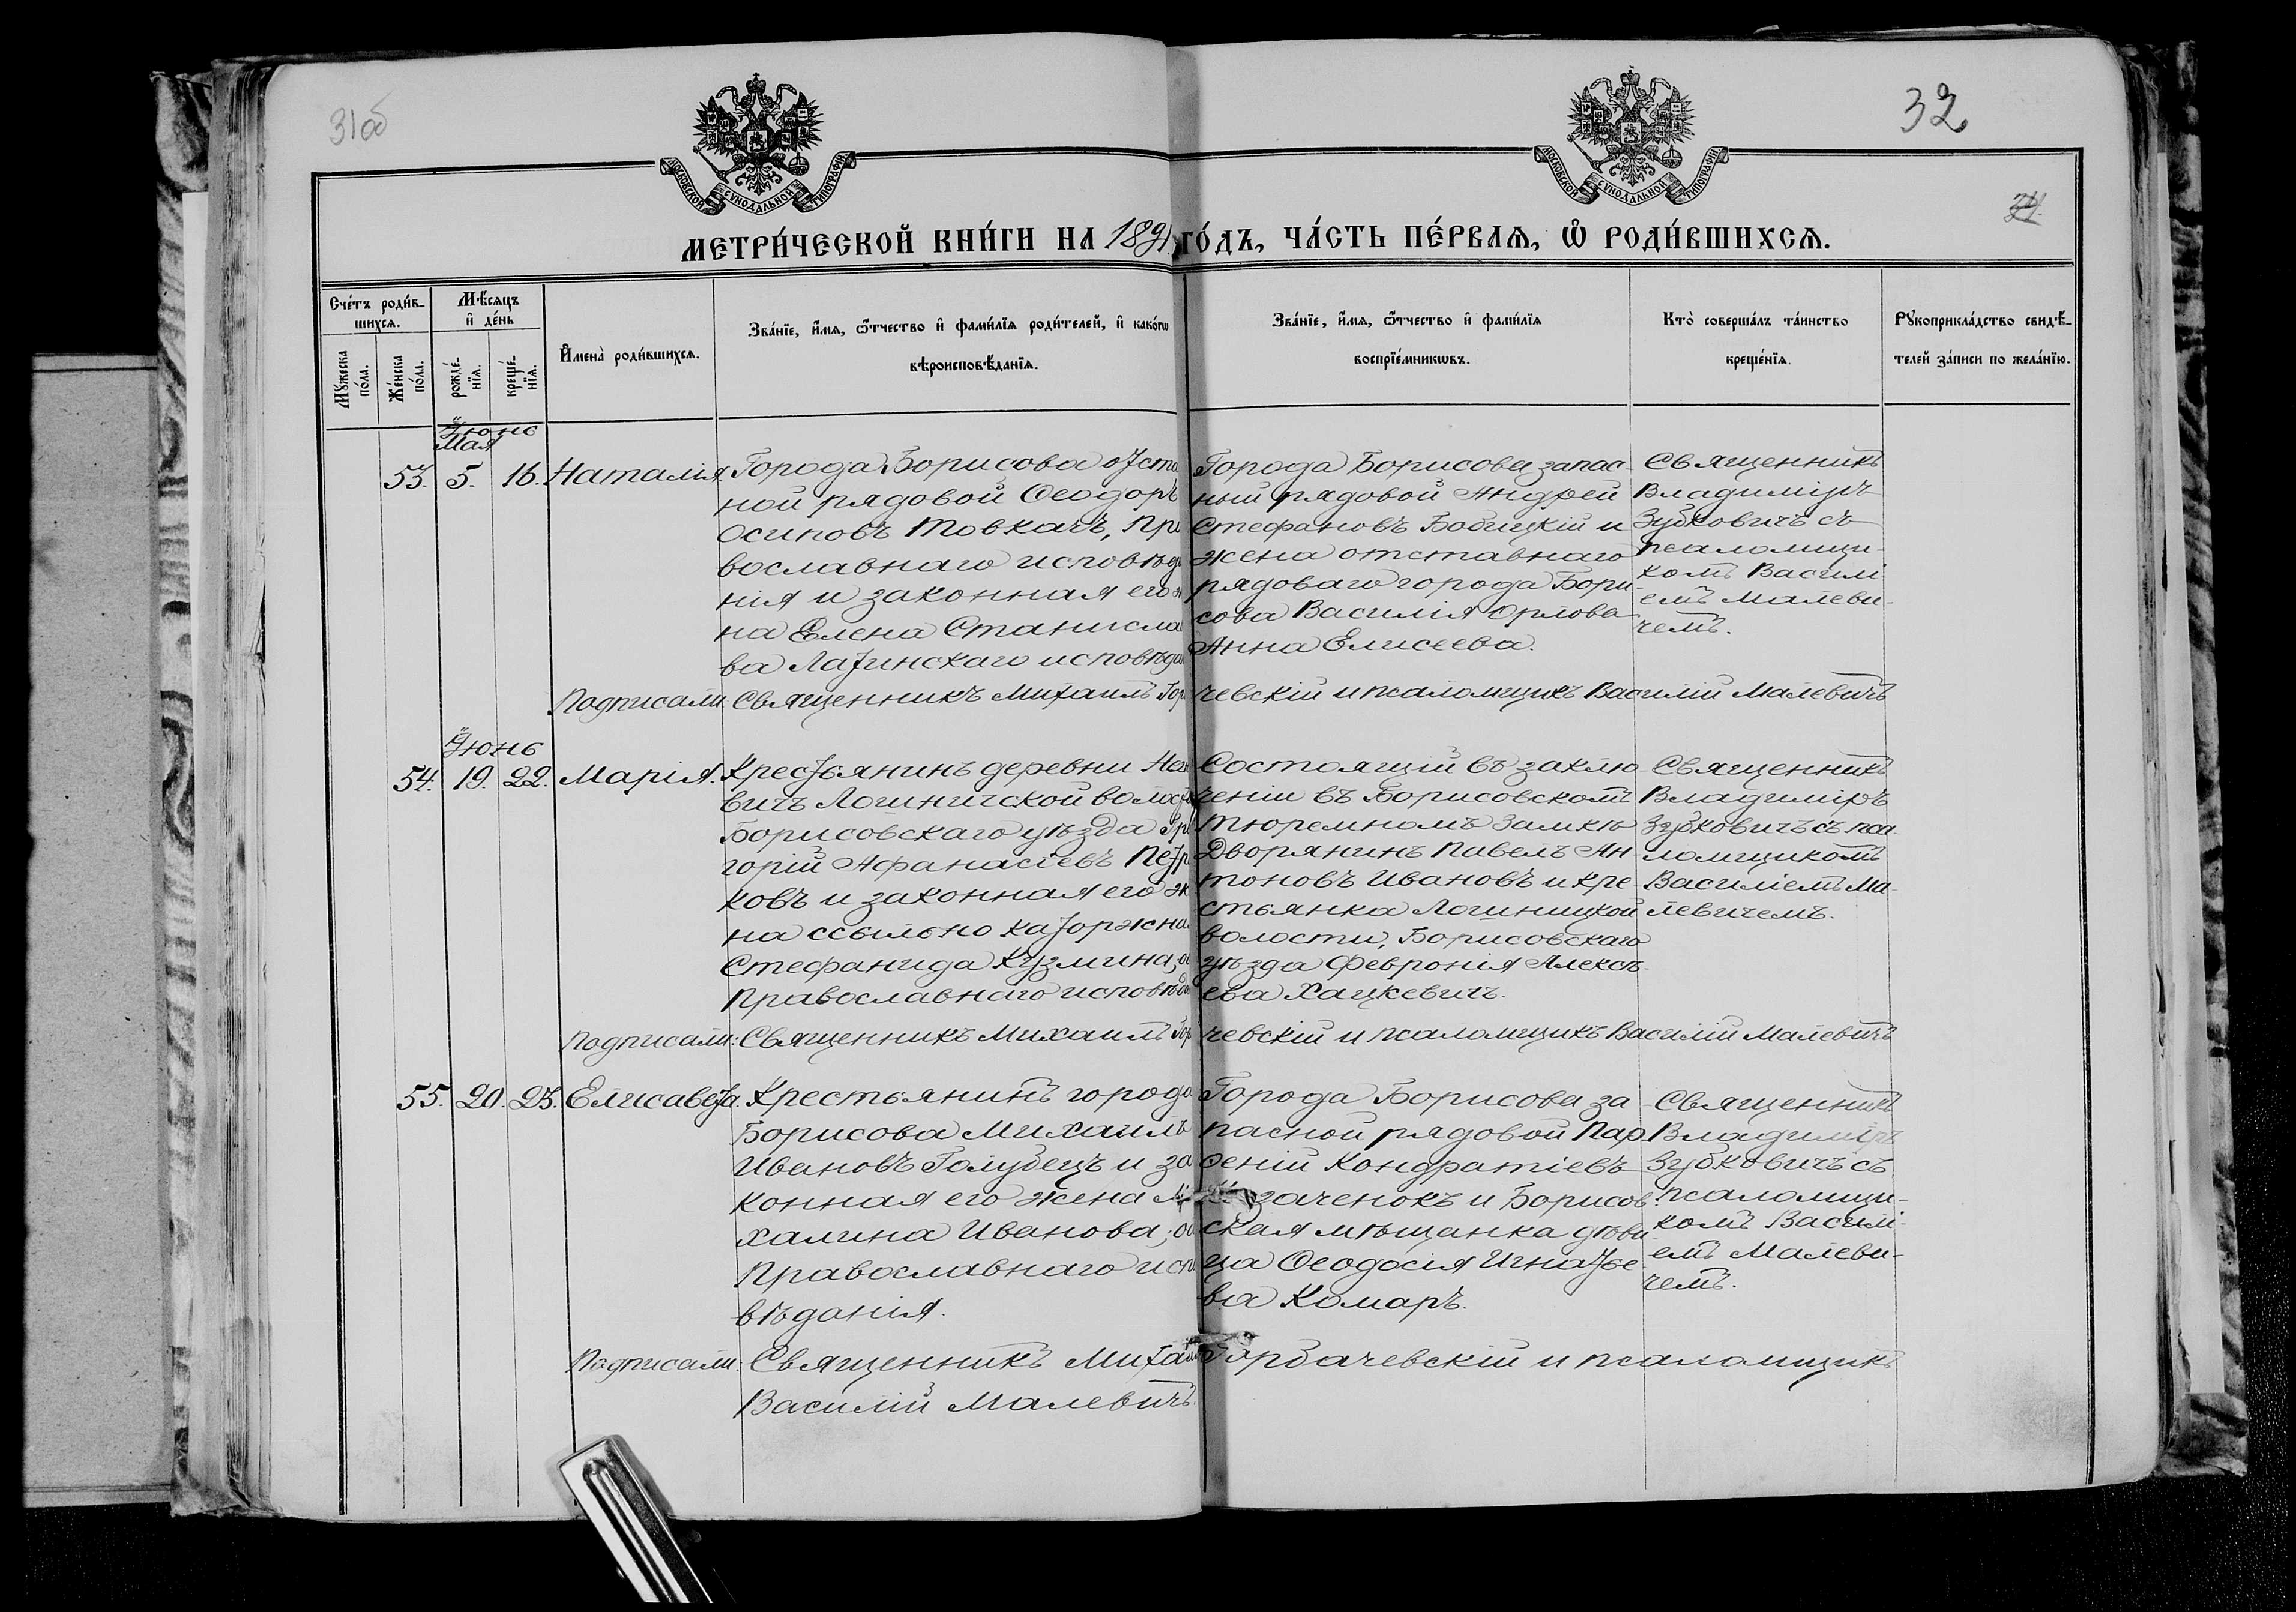 31об
32
МОСКОВСКОЙ СУНОДАЛЬНОЙ ТИПОГРАФІИ
МОСКОВСКОЙ СУНОДАЛЬНОЙ ТИПОГРАФІИ
МЕТРИ́ЧЕСКОЙ КНИ́ГИ НА 189 ГО́ДЪ, ЧА́СТЬ ПЕ́РВАѦ, Ѡ҆ РОДИ́ВШИХСѦ.
Сче́тъ роди́в-
шихсѧ.
Мꙋ́жеска по́ла.
Же́нска по́ла.
Мѣ́сѧцъ
и҆ де́нь
рожде́-нїѧ.
креще́-нїѧ.
И҆мена̀ роди́вшихсѧ.
Зва́нїе, и҆́мѧ, ѻ҆́тчество и҆ фами́лїѧ роди́телей, и҆ како́гѡ
вѣроисповѣ́данїѧ.
Зва́нїе, и҆́мѧ, ѻ҆́тчество и҆ фами́лїѧ
воспрїе́мникѡвъ.
Кто̀ соверша́лъ та́инство
креще́нїѧ.
Рꙋкоприкла́дство свидѣ́-
телей за́писи по жела́нїю.
Іюнь
Мая
53. 5. 16. Наталія.
Города Борисова отста
ной рядовой Ѳеодоръ
Осиповъ Товкачъ, Пра
вославнаго исповѣда
нія и законная его ж
на Елена Станисла
ва Латинскаго исповѣда
Города Борисова запас-
ный рядовой Андрей
Стефановъ Бобицкій и
жена отставнаго
рядоваго города Бори-
сова Василія Орлова
Анна Елисеева.
Священникъ
Владиміръ
Зубковичъ съ
псаломщи-
комъ Василі
емъ Малеви-
чемъ.
Подписали Священникъ Михаилъ Гор чевскій и псаломщикъ Василій Малевичъ
Іюнь
54. 19. 22. Марія.
Крестьянинъ деревни
вичъ Логиничской волост
Борисовскаго уѣзда Гри
горій Афанасіевъ Петр
ковъ и законная его ж
на ссыльно каторжна
Стефанида Кузмина, о
Православнаго исповѣда
Состоящій въ заклю
ченіи въ Борисовскомъ
тюремномъ замкѣ
Дворянинъ Павелъ Ан
тоновъ Ивановъ и кре
стьянка Логиницкой
волости, Борисовскаго
уѣзда Февронія Алексѣ
ева Хацкевичъ.
Священникъ
Владиміръ
Зубковичъ съ пса
ломщикомъ
Василіемъ Ма-
левичемъ.
Подписали: Священникъ Михаилъ Гор чевскій и псаломщикъ Василій Малевичъ
55. 20. 23. Елисавета.
Крестьянинъ города
Борисова Михаилъ
Ивановъ Голубецъ и за
конная его жена Ми
халина Иванова, о
Православнаго испо
вѣданія.
Города Борисова за
пасной рядовой Пар
ѳеній Кондратіевъ
заченокъ и Борисов
ская мѣщанка дѣви
ца Ѳеодосія Игнатье
ва Комаръ.
Священникъ
Владиміръ
Зубковичъ съ
псаломщи-
комъ Василі-
емъ Малеви-
чемъ.
Подписали. Священникъ Михаилъ Горбачевскій и псаломщикъ
Василій Малевичъ.